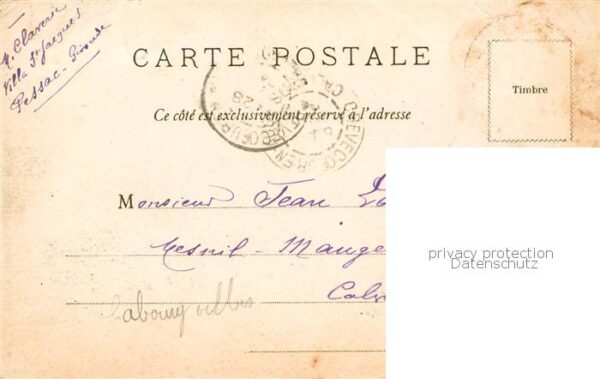 M. Claverie
Villa St Jacques
Pessac - Gironde
CARTE POSTALE
Timbre
Ce côté est exclusivement réservé à l'adresse
CREVECOEUR
Monsieur Jean
Mesnil-Mauge
Calv
privacy protection
Datenschutz